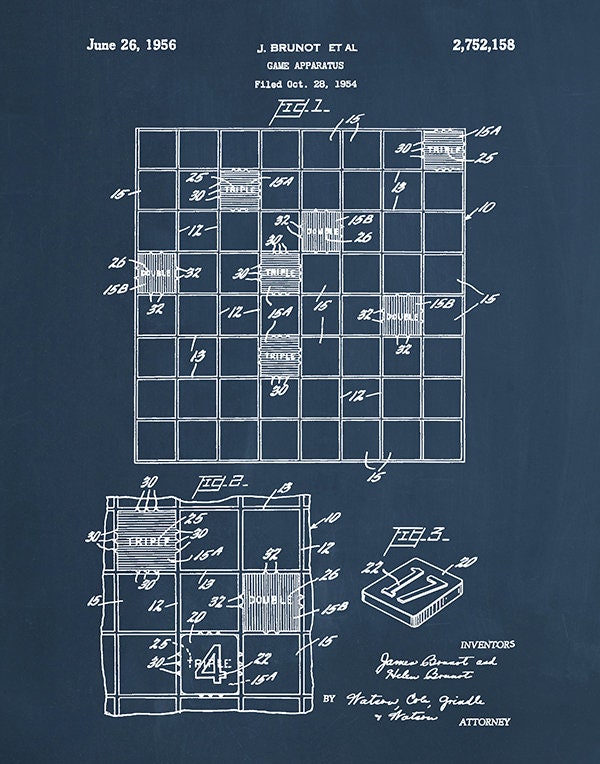 June 26, 1956
J. BRUNOT ET AL
2,752,158
GAME APPARATUS
Filed Oct. 28, 1954
FIG_1_
15
30 15A
TRIPLE
25
25
15A
30
TRIPLE
13
15
10
12
32
15B
DOUBLE
26
30
26
DOUBLE
32
30
TRIPLE
15B
32
15
15
12
15A
15B
32
DOUBLE
32
13
TRIPLE
30
12
15
FIG_2_
30
13
25
10
30
TRIPLE
30
15A
12
30
13
32
26
15
12
32
DOUBLE
15B
20
25
15
30
TRIPLE
4
22
15A
FIG_3_
22
20
17
INVENTORS
James Brunot and
Helen Brunot
BY Watson, Cole, Grindle
& Watson
ATTORNEY